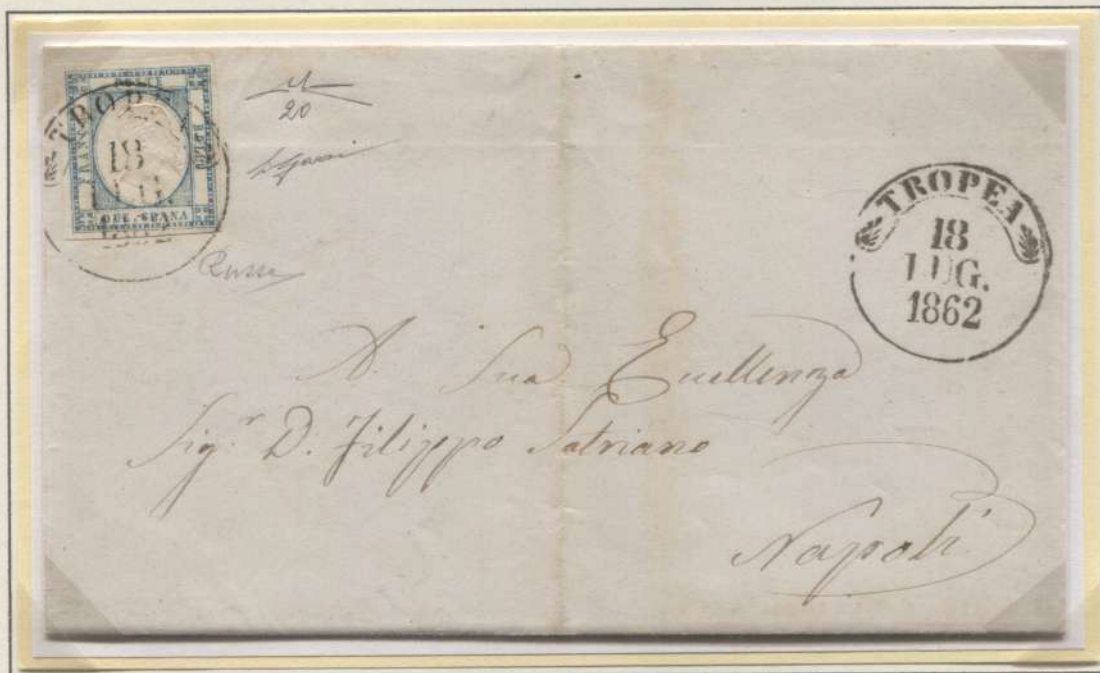 TROPEA
18
LUG.
1862
DUE GRANA
20
TROPEA
18
LUG.
1862
A Sua Eccellenza
Sig.r D. Filippo Satriano
Napoli